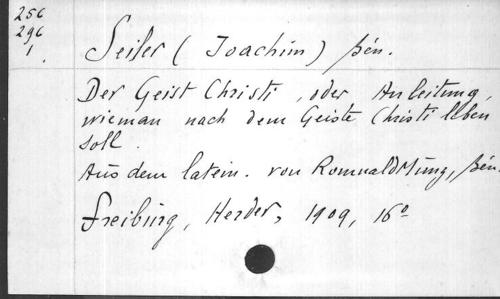 256
296
1.
Seiler (Joachim) bén.
Der Geist Christi, oder Anleitung,
wieman nach dem Geiste Christi leben
soll.
Aus dem latein. von Romuald Mung, bén.
Freiburg, Herder, 1909, 16º